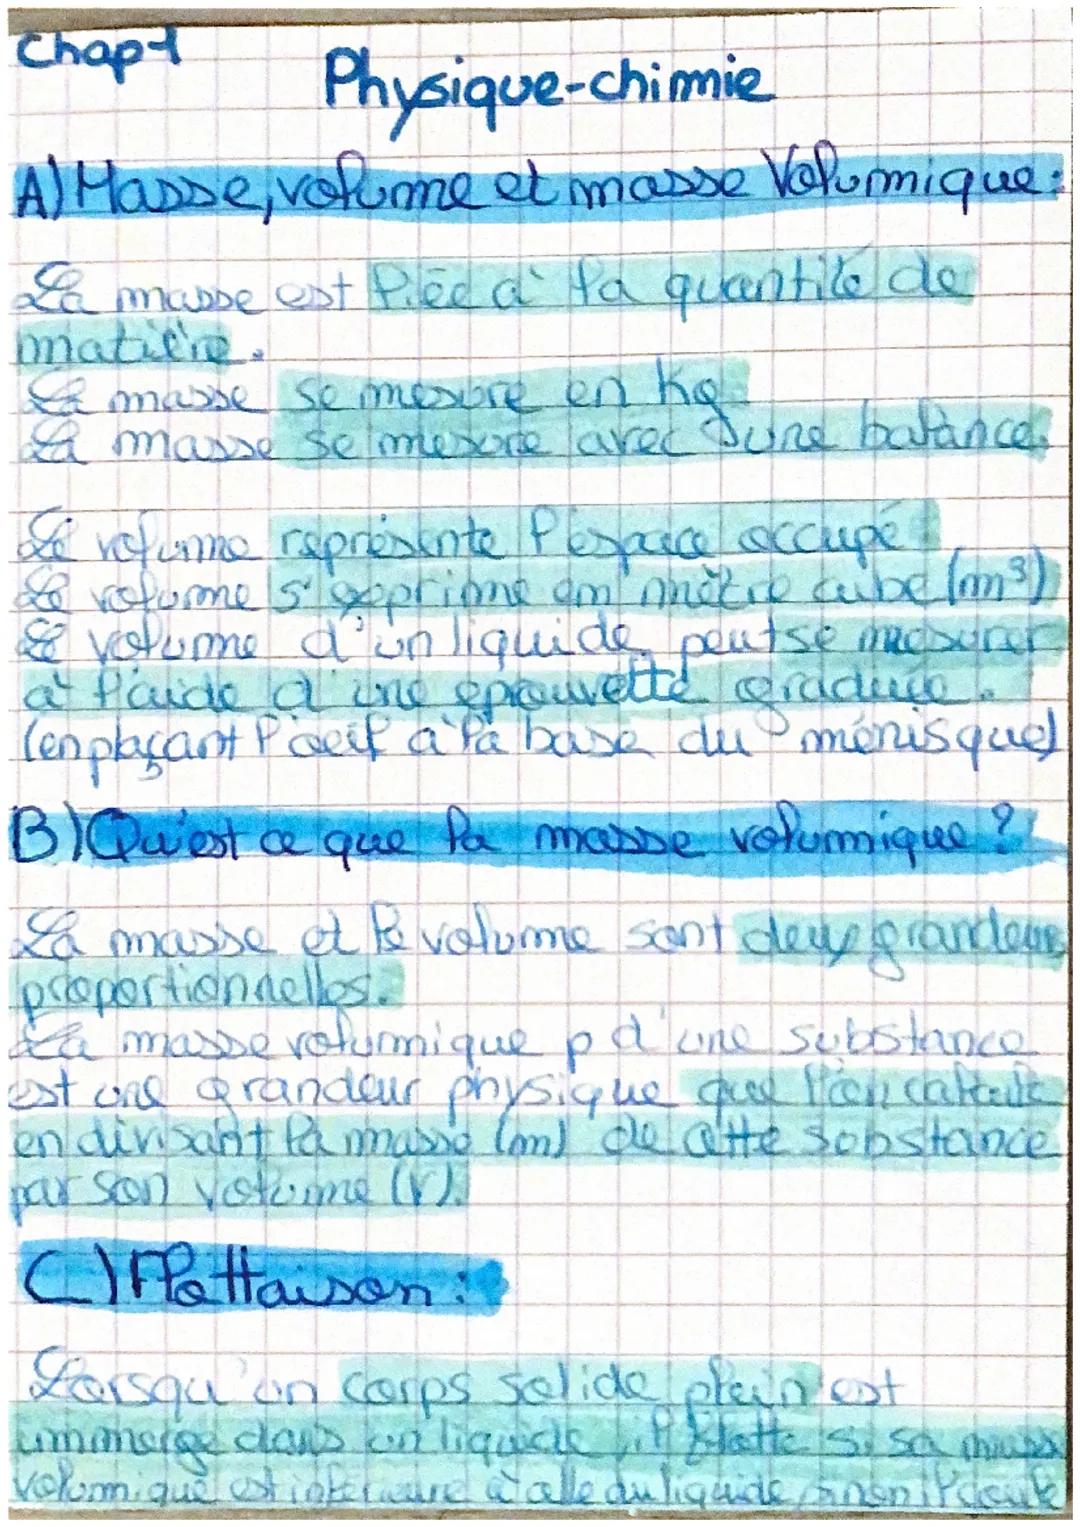 Chap 1
Physique-chimie
A) Masse, volume et masse Volumique:
La masse est liée à la quantité de
matière.
La masse se mesure en Kg
La masse se mesure avec d'une balance.
Le volume représente l'espace occupé
Le volume s'exprime em mètre cube (m³)
Le volume d'un liquide peut se mesurer
à l'aide d'une éprouvette graduée.
(en plaçant l'oeil à la base du ménisque)
B) Qu'est ce que la masse volumique ?
La masse et le volume sont deux grandeurs
proportionnelles.
La masse volumique p d'une substance
est une grandeur physique que l'on calcule
en divisant la masse (m) de cette substance
par son volume (V).
C) Flottaison :
Lorsqu'un corps solide plein est
immergé dans un liquide, il flotte si sa masse
volumique est inférieure à celle du liquide, sinon il coule